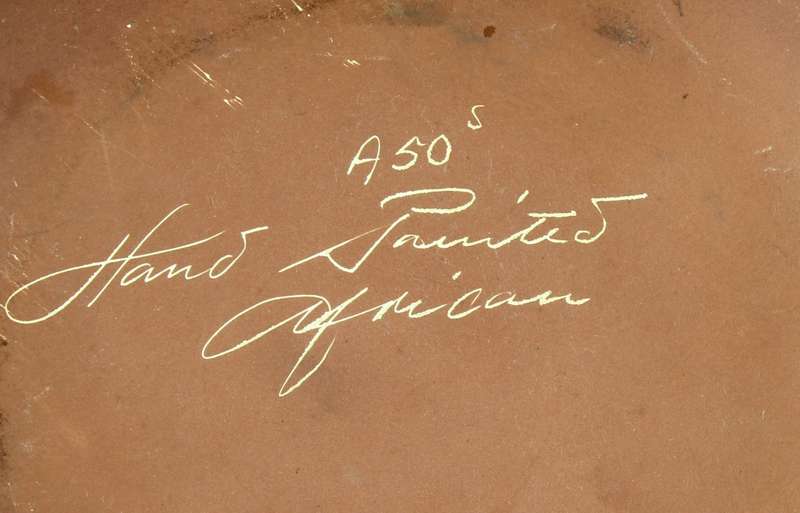 A50s
Hand Painted
African